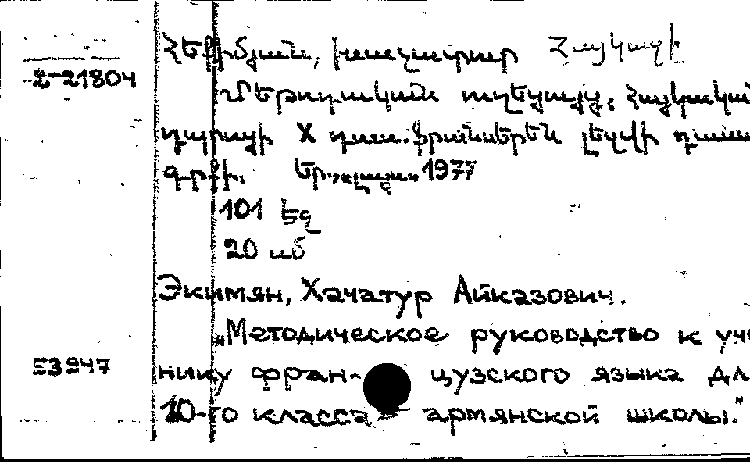 Հեքիմյան, Խաչատուր Հայկազի
2-21804
Մեթոդական ուղեցույց; հայկական
դպրոցի X դաս. ֆրանսերեն լեզվի դասա
գրքի. Եր., «Լույս» 1977
101 էջ
20 սմ
Экимян, Хачатур Айказович.
„Методическое руководство к уче
53947
нику фран- цузского языка дл
10-го класса армянской школы."